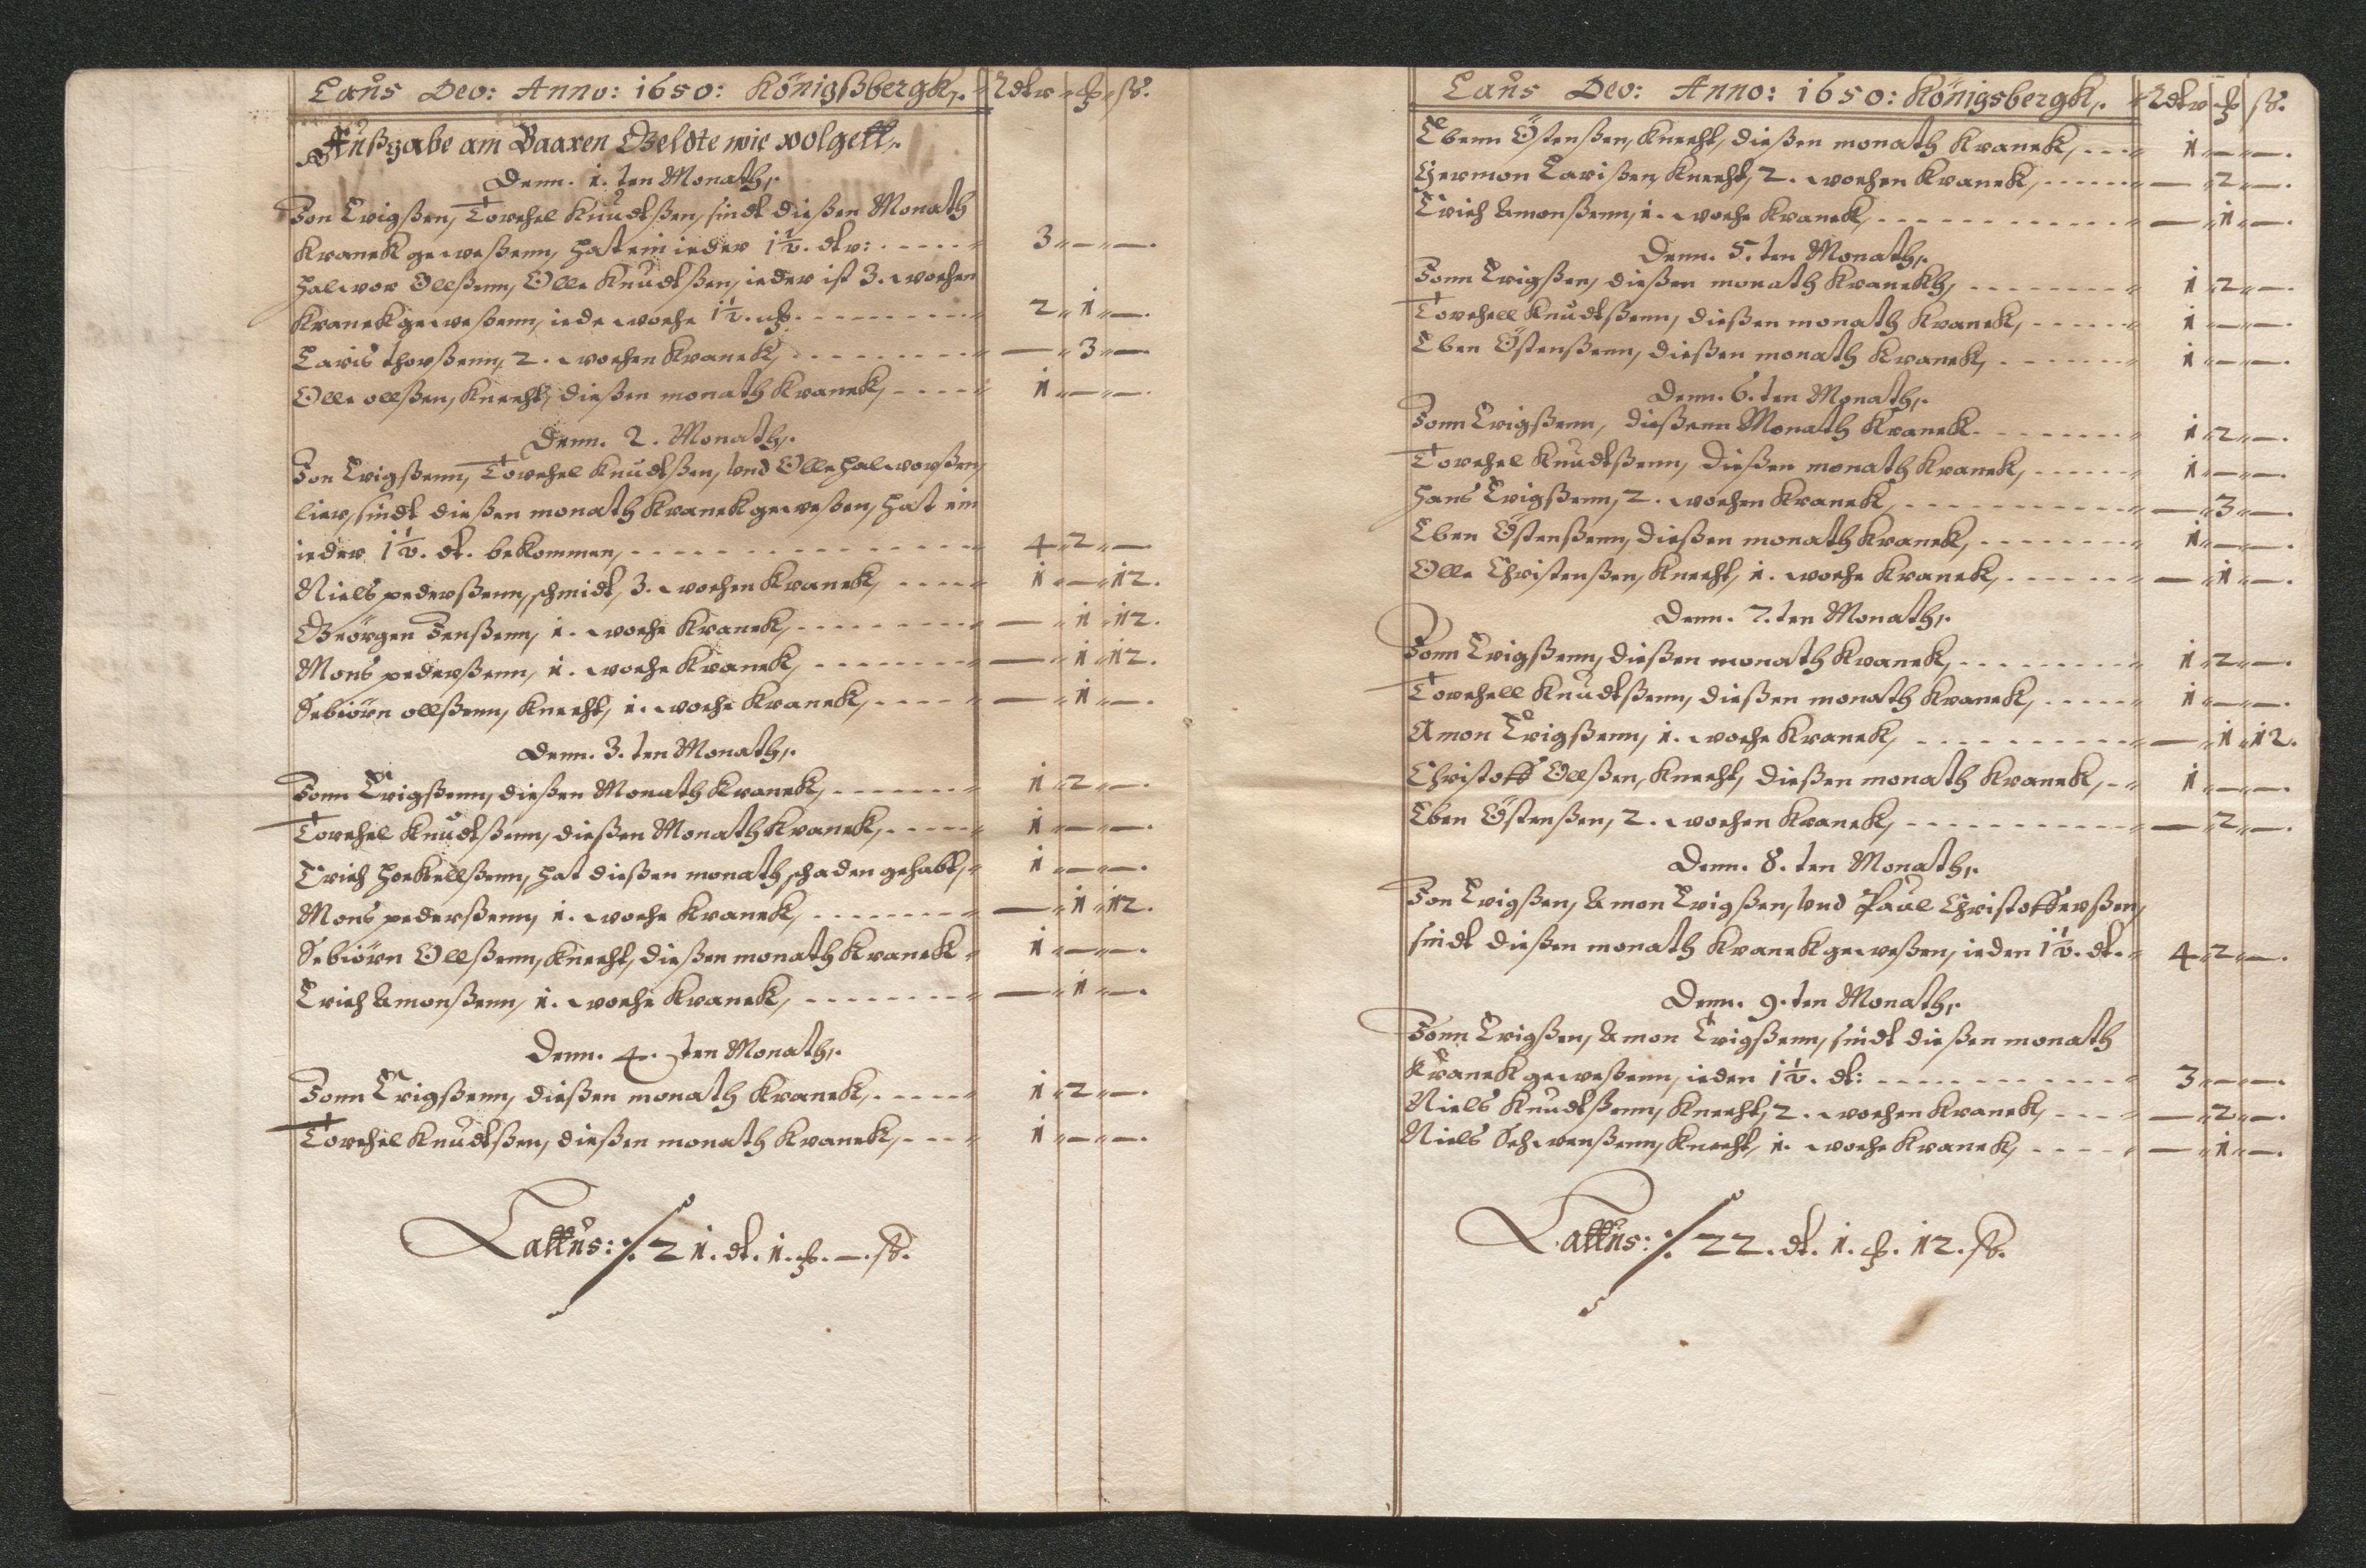 Laus Deo: Anno: 1650: Königßbergk,. Rdlr ȶ ß.
Außgabe am Baaren Geldte wie volgett,.
Denn. 1. ten Monath,.
Jon Erigßen, Torchel Knudtßen, sindt dießen Monath
Kranck geweßenn, hat ein ieder 1½. dlr: - - - - - 3 „ — „ —.
Halwor Ollßenn, Olle Knudtßen, ieder ist 3. wochen
Kranck geweßenn, iede woche 1½. ȶ. - - - - - - - - - 2 „ 1 „ —.
Laris thorßenn, 2. wochen Kranck, - - - - - - - - — „ 3 „ —.
Olle ollßen, Knecht, dießen monath Kranck, - - - - 1 „ — „ —.
Denn. 2. Monath,.
Jon Erigßenn, Torchel Knudtßen, vnd Olle Halworßen,
lier, sindt dießen monath Kranck geweßen, hat ein
ieder 1½. dl. bekommen, - - - - - - - - - - - - - - 4 „ 2 „ —.
Niels pederßenn, schmidt, 3. wochen Kranck, - - - - 1 „ — „ 12.
Geörgen Jenßenn, 1. woche Kranck, - - - - - - - - - — „ 1 „ 12.
Mons pederßenn, 1. woche Kranck, - - - - - - - - - — „ 1 „ 12.
Sebiörn ollßenn, Knecht, 1. woche Kranck, - - - - — „ 1 „ —.
Denn. 3. ten Monath,.
Jonn Erigßenn, dießen Monath Kranck, - - - - - - - 1 „ 2 „ —.
Torchel Knudtßenn, dießen Monath Kranck, - - - - - 1 „ — „ —.
Erich Hoekellßenn, hat dießen monath schaden gehabtt, 1 „ — „ —.
Mons pederßenn, 1. woche Kranck, - - - - - - - - — „ 1 „ 12.
Sebiörn Ollßenn, Knecht, dießen monath Kranck 1 „ — „ —.
Erich Amonßenn, 1. woche Kranck, - - - - - - - - — „ 1 „ —.
Denn. 4. ten Monath,.
Jonn Erigßenn, dießen monath Kranck, - - - - - 1 „ 2 „ —.
Torchel Knudtßen, dießen monath Kranck, - - - - 1 „ — „ —.
Lattus: ⁒ 21. dl. 1. ȶ. —. ß.
Laus Deo: Anno: 1650: Königsbergk,. Rdlr ȶ ß.
Ebenn Östenßen, Knecht, dießen monath Kranck, - - - 1 „ — „ —.
Hermon Larißen, Knecht, 2. wochen Kranck, - - - - - - — „ 2 „ —.
Erich Amonßenn, 1. woche Kranck, - - - - - - - - - - - — „ 1 „ —.
Denn. 5. ten Monath,.
Jonn Erigßen, dießen monath Kranckh, - - - - - - - - 1 „ 2 „ —.
Torchell Knudtßenn, dießen monath Kranck, - - - - - - 1 „ — „ —.
Eben Östenßenn, dießen monath Kranck, - - - - - - - 1 „ — „ —.
Denn. 6. ten Monath,.
Jonn Erigßenn, dießenn Monath Kranck. - - - - - - - 1 „ 2 „ —.
Torchel Knudtßenn, dießen monath Kranck, - - - - - - 1 „ — „ —.
Hans Erigßenn, 2. wochen Kranck, - - - - - - - - - - - — „ 3 „ —.
Eben Östenßenn, dießen monath Kranck, - - - - - - - - 1 „ — „ —.
Olle Christenßen, Knecht, 1. woche Kranck, - - - - - - — „ 1 „ —.
Denn. 7. ten Monath,.
Jonn Erigßenn, dießen monath Kranck, - - - - - - - - - 1 „ 2 „ —.
Torchell Knudtßenn, dießen monath Kranck, - - - - - 1 „ — „ —.
Amon Erigßenn, 1. woche Kranck, - - - - - - - - - - - — „ 1 „ 12.
Christoff Ollßen, Knecht, dießen monath Kranck, - 1 „ — „ —.
Eben Östenßen, 2. wochen Kranck, - - - - - - - - - - - — „ 2 „ —.
Denn. 8. ten Monath,.
Jon Erigßen, Amon Erigßen, vnd Paul Christofferßen,
sindt dießen monath Kranck geweßen, ieden 1½. dl. 4 „ 2 „ —.
Denn. 9. ten Monath,.
Jonn Erigßen, Amon Erigßenn, sindt dießen monath
Kranck geweßenn, ieden 1½. dl: - - - - - - - - - - - - 3 „ — „ —.
Niels Knudtßenn, Knecht, 2. wochen Kranck, - - - — „ 2 „ —.
Niels Schwenßenn, Knecht, 1. woche Kranck, - - - - — „ 1 „ —.
Lattus: ⁒ 22. dl. 1. ȶ. 12. ß.